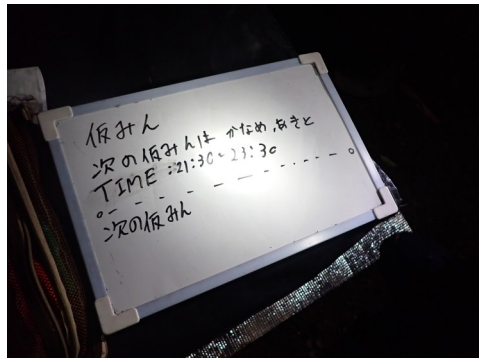 仮みん
次の仮みんは かなめ,あきと
TIME:21:30~23:30
次の仮みん